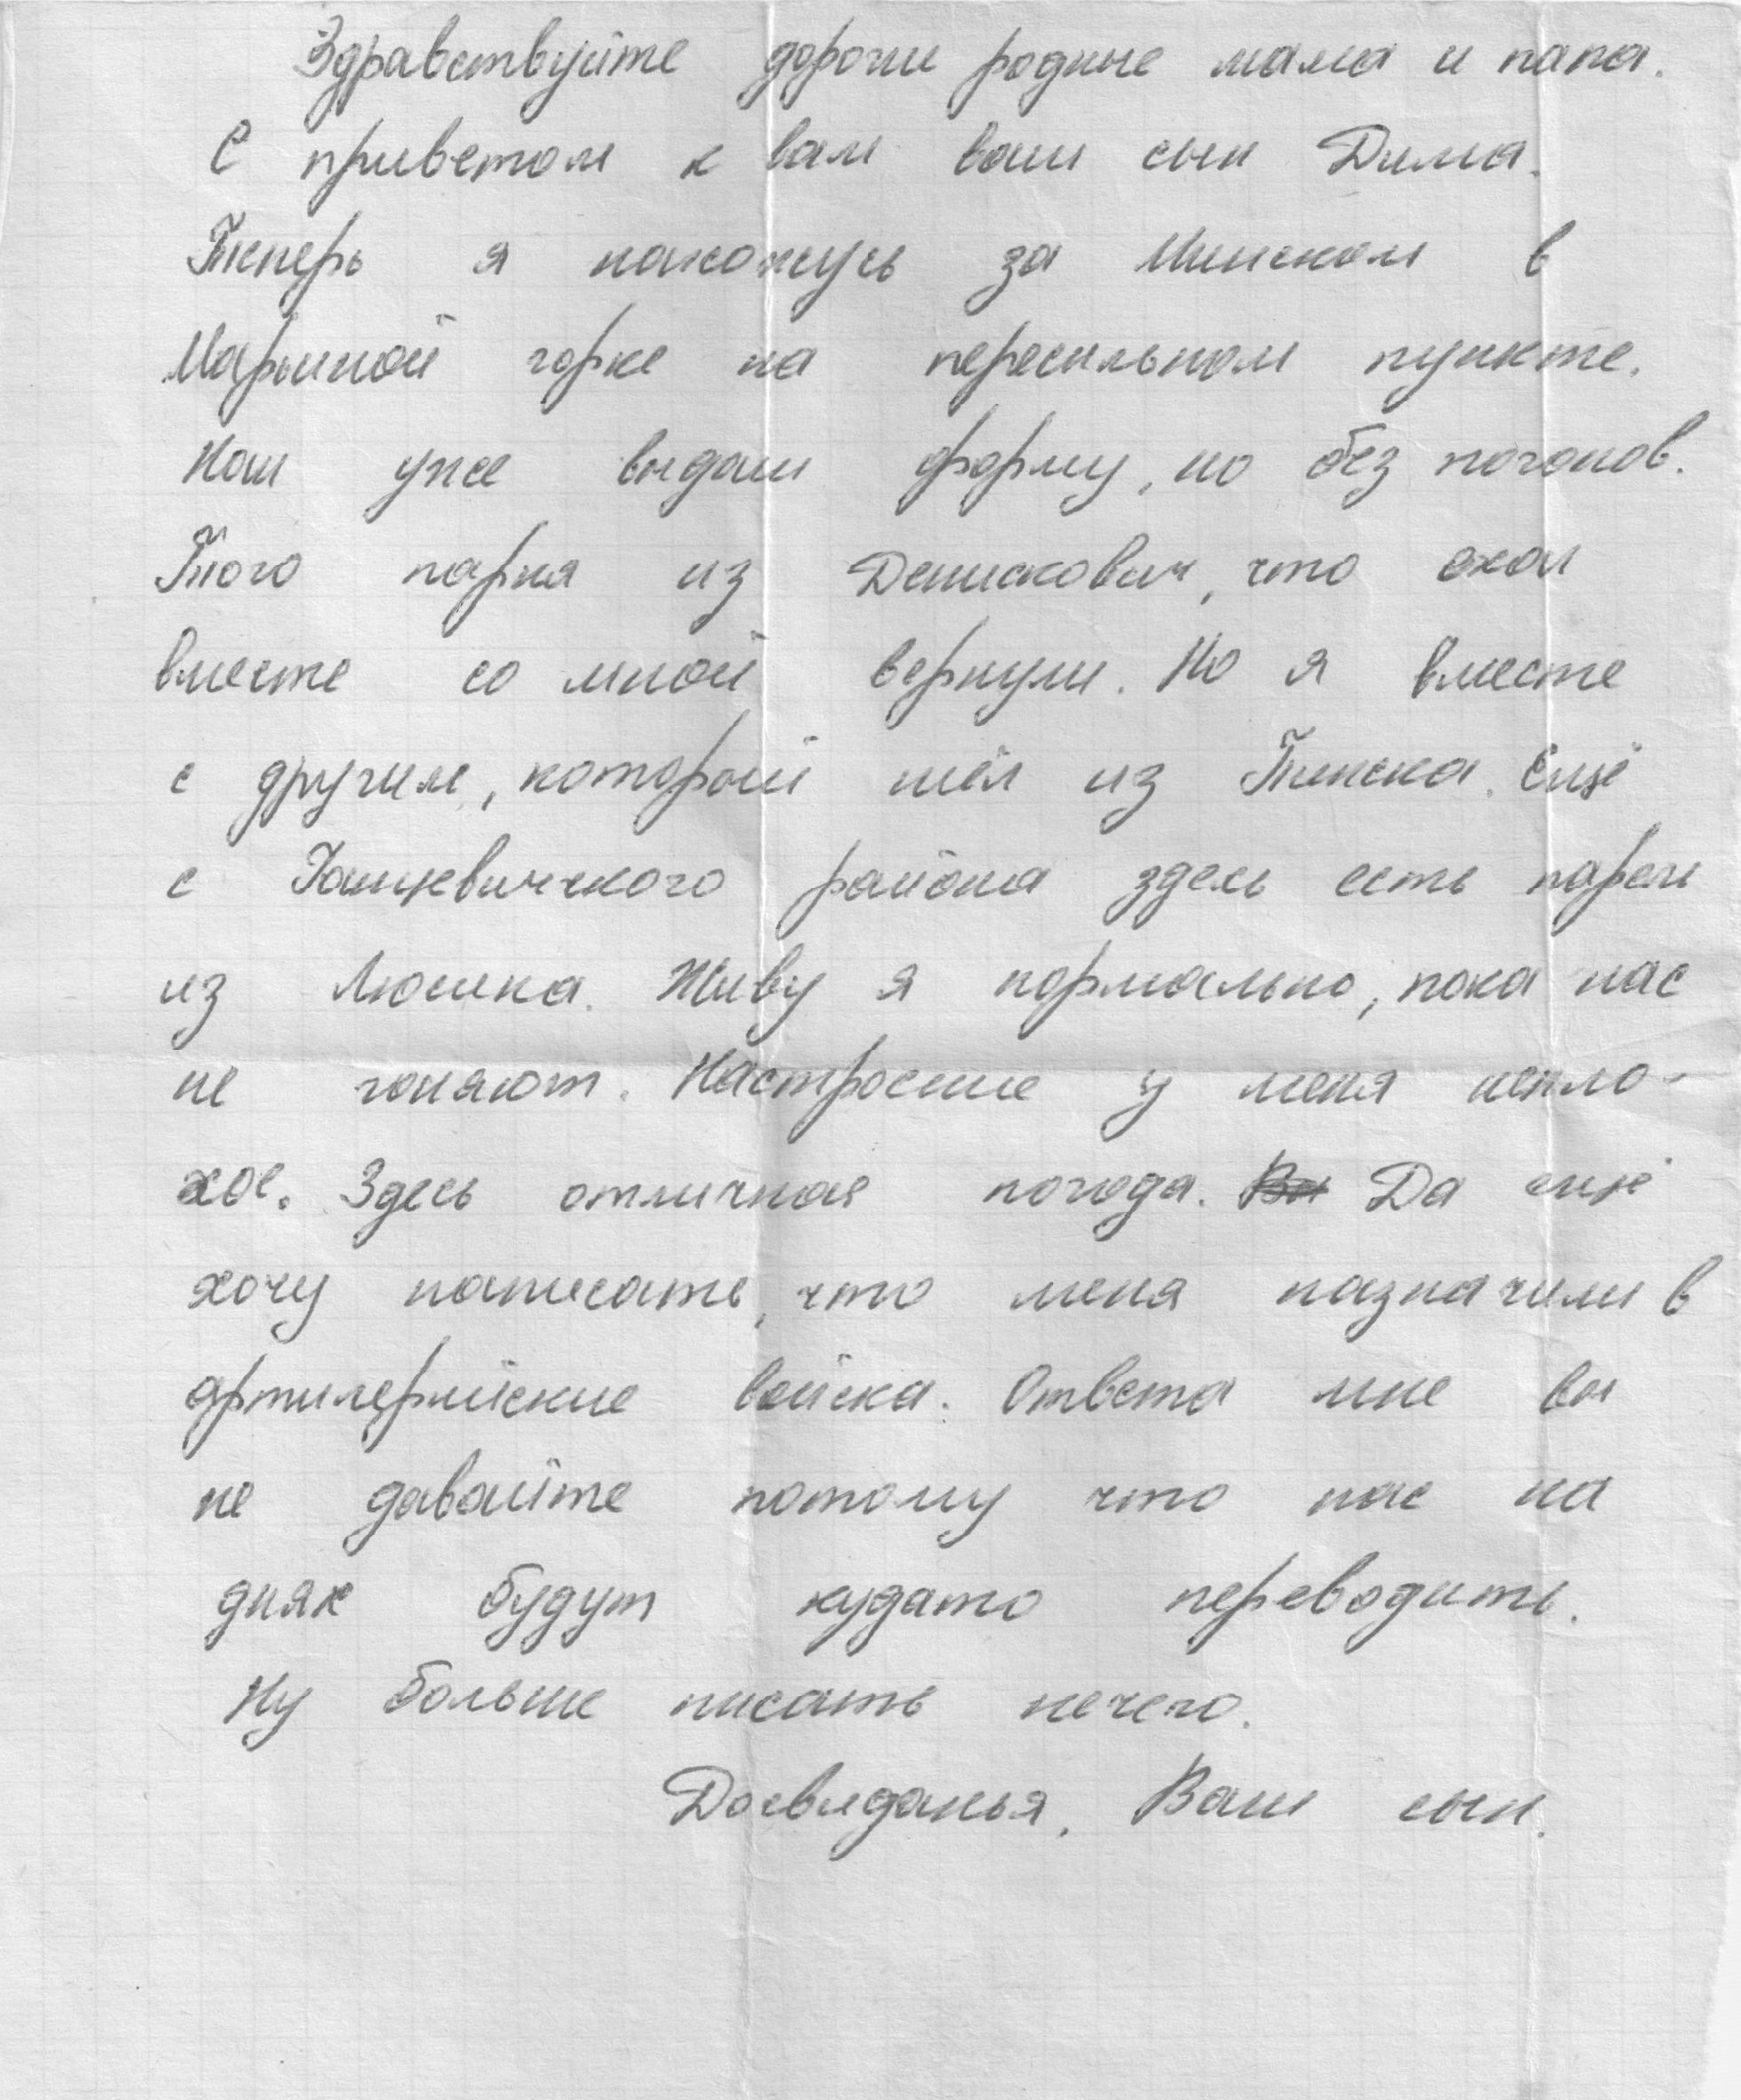 Здравствуйте дороги родные мама и папа.
С приветом к вам ваш сын Дима.
Теперь я нахожусь за Минском в
Марьиной горке на пересильном пункте.
Нам уже выдали форму, но без погонов.
Того парня из Денискович, что ехал
вместе со мной вернули. Но я вместе
с другим, которой шёл из Пинска. Ещё
с Ганцевичского района здесь есть парень
из Люсина. Живу я нормально, пока нас
не гоняют. Настроение у меня непло-
хое. Здесь отличная погода. Да ещё
хочу написать, что меня назначили в
артилерийские войска. Ответа мне вы
не давайте потому что нас на
днях будут кудато переводить.
Ну больше писать нечего.
Досвиданья. Ваш сын.